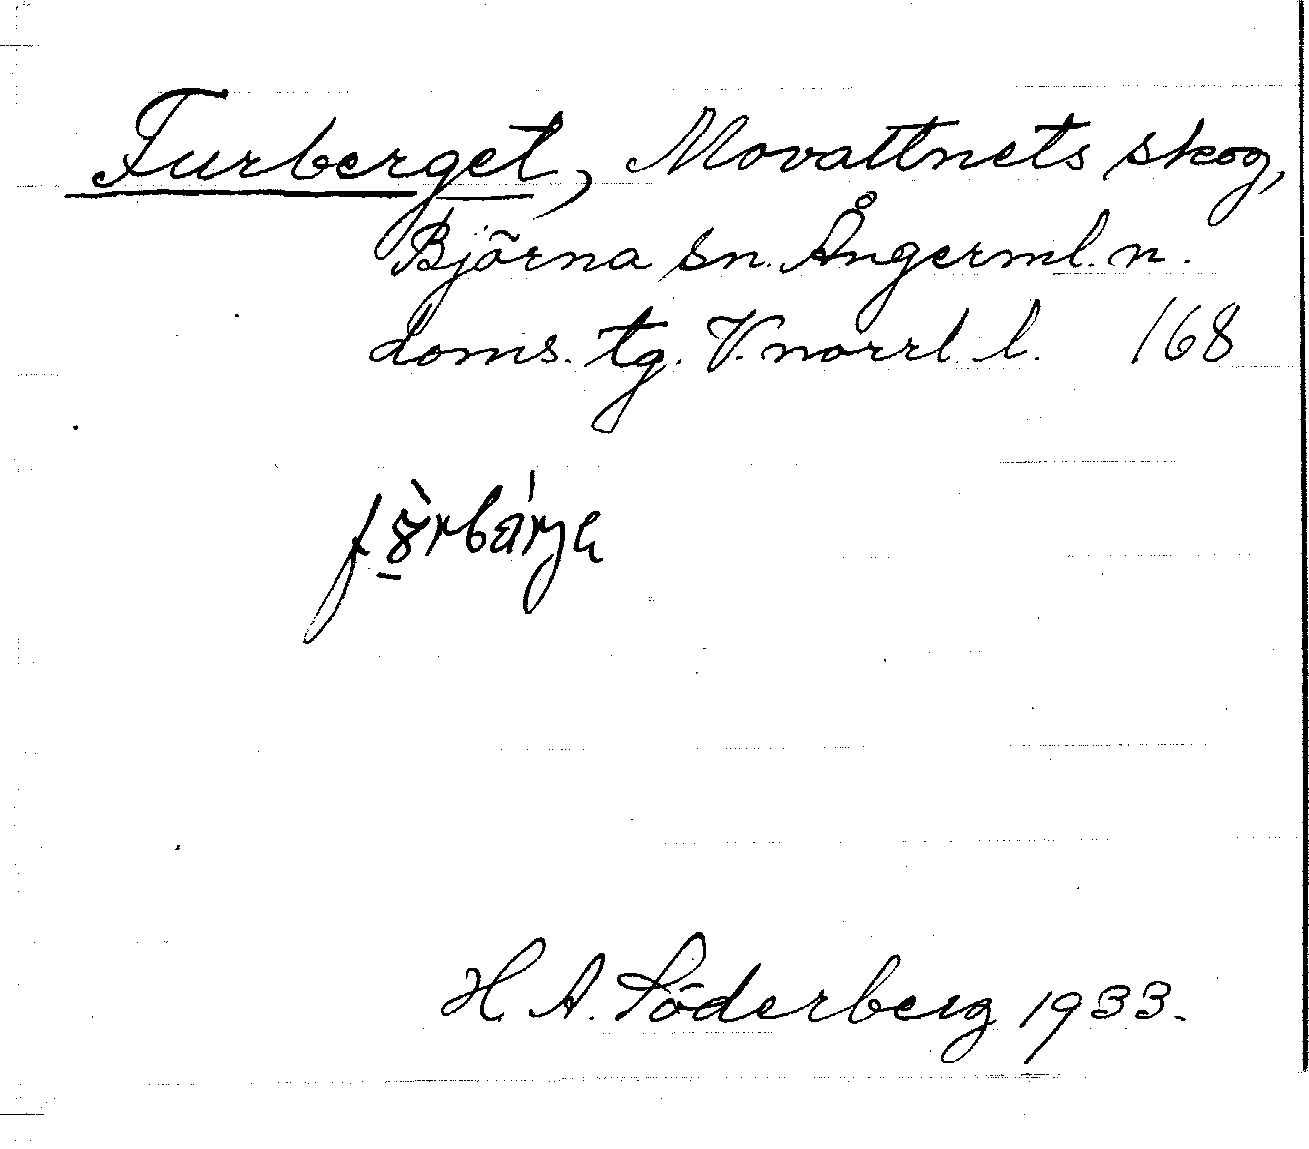 Furberget, Movattnets skog,
Björna sn. Ångerml. n.
doms. tg. V. norrl. l. 168
H. A. Söderberg 1933.